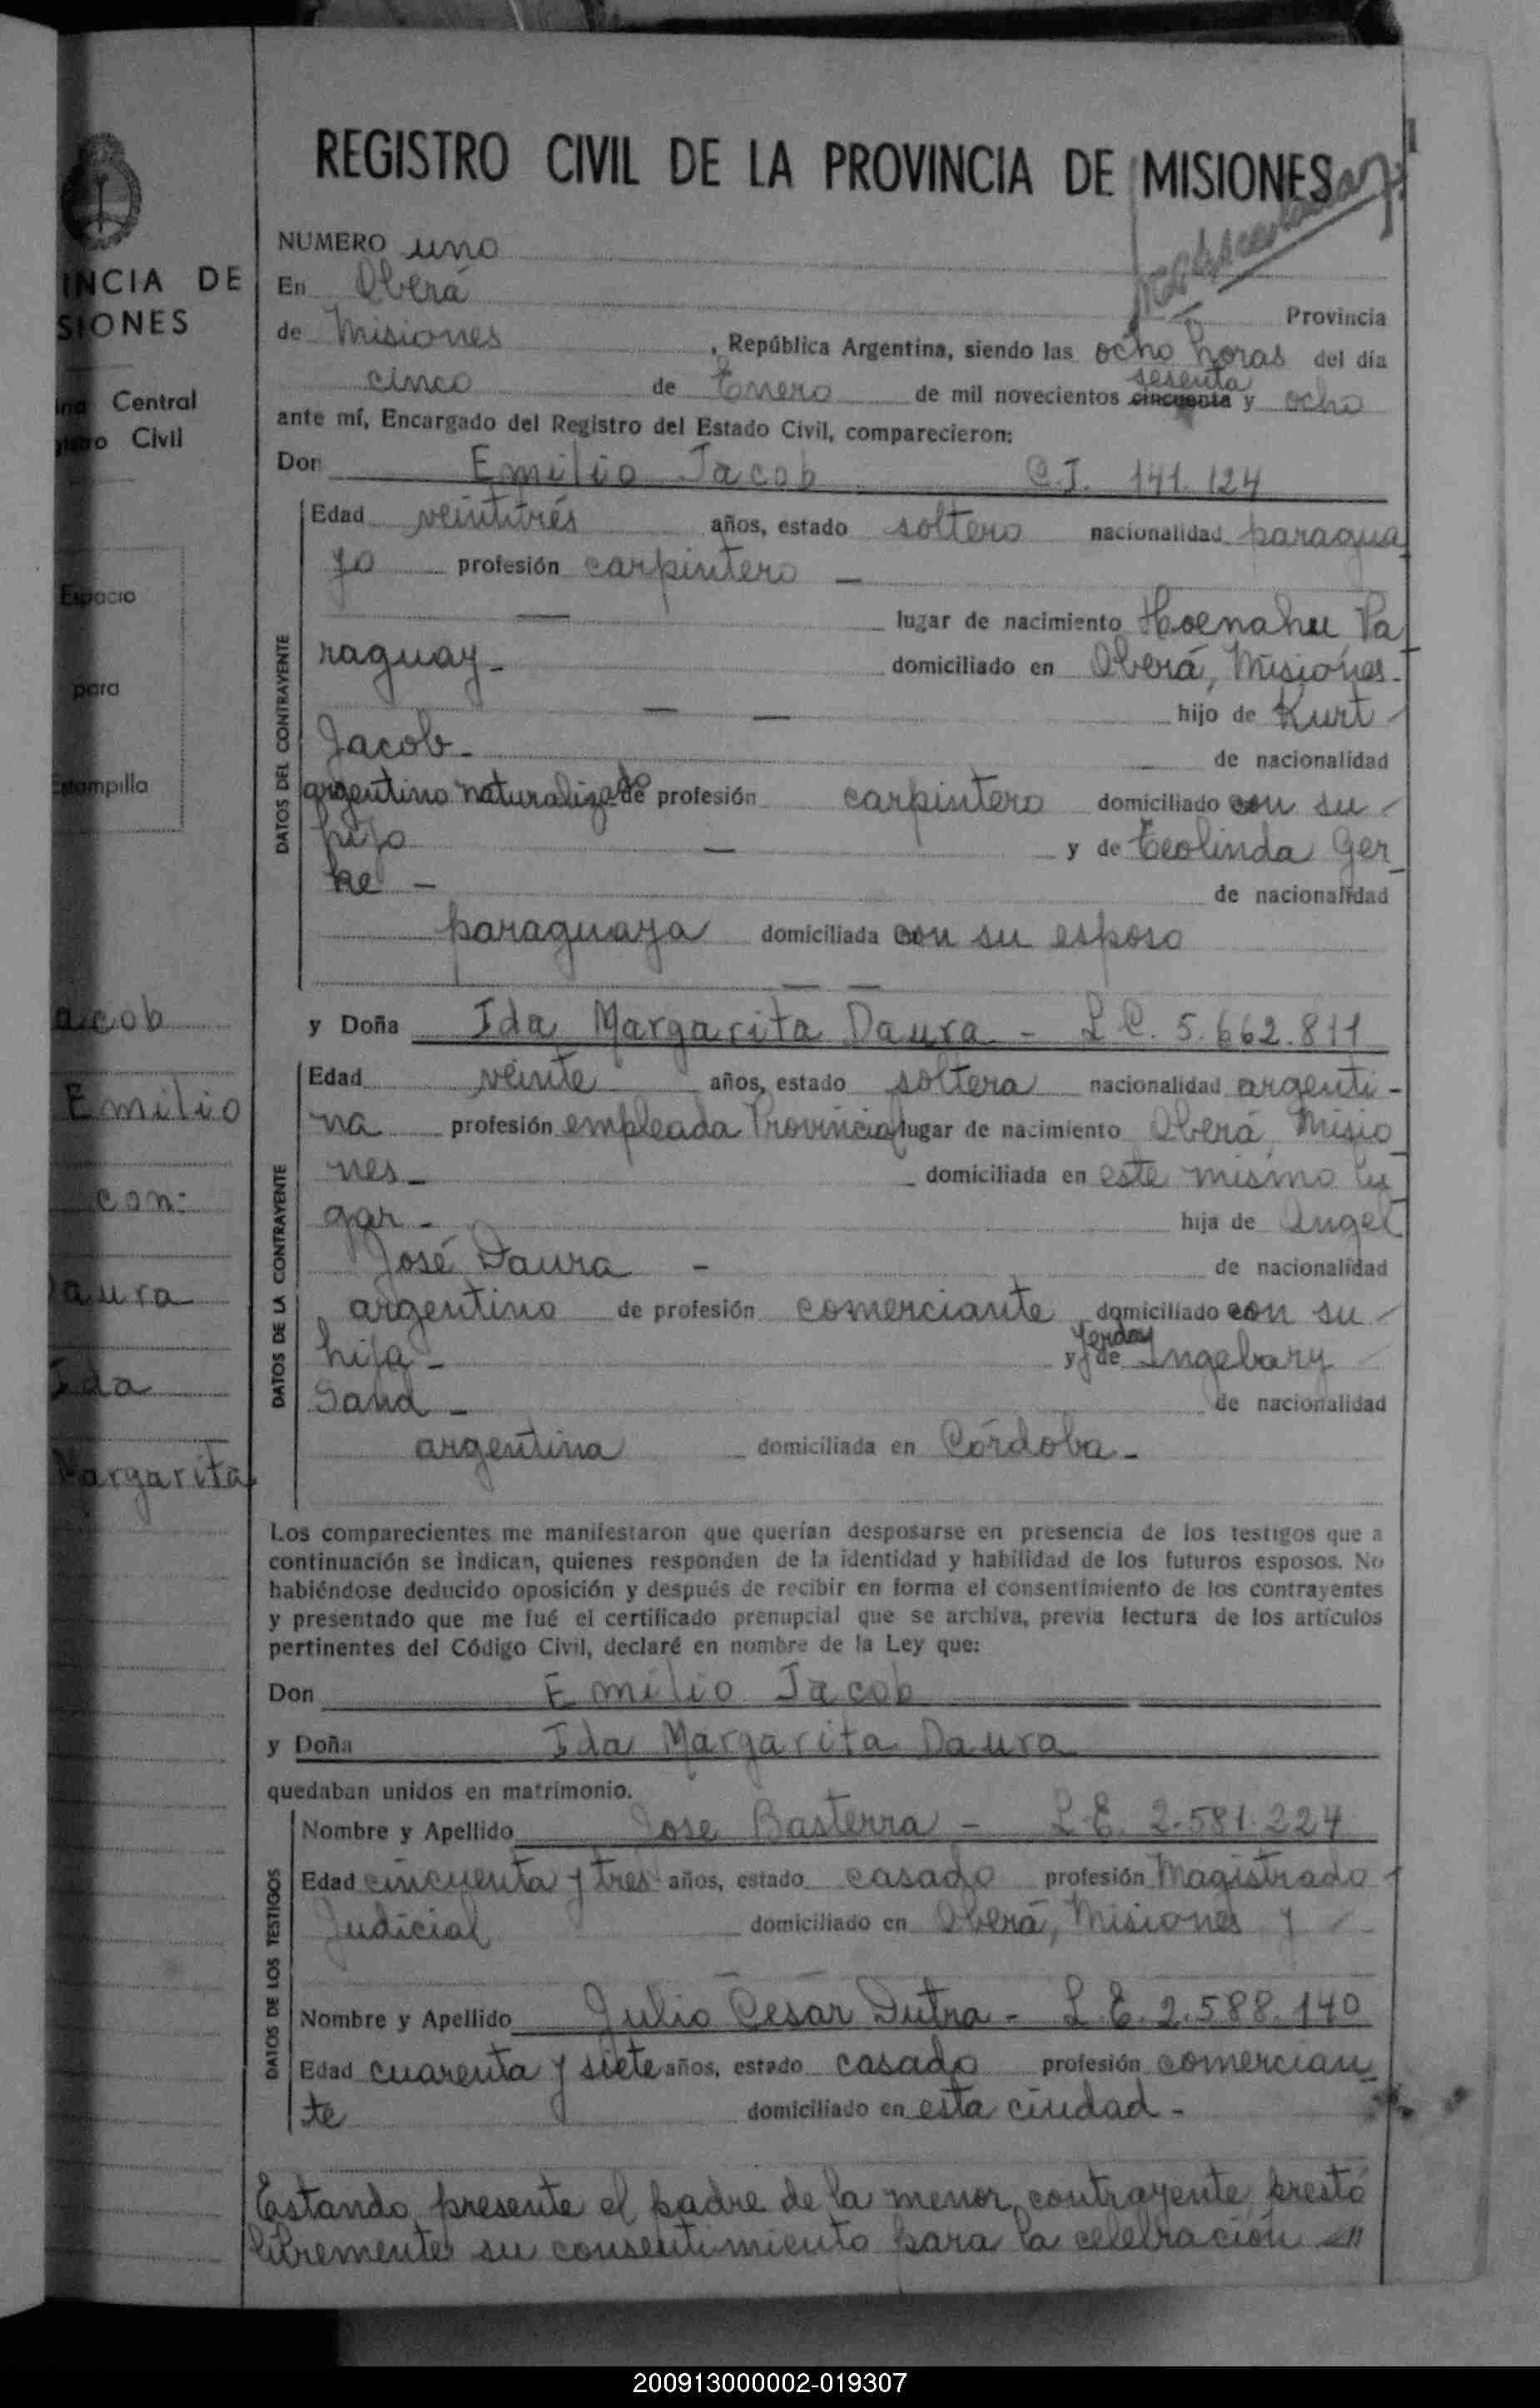 REGISTRO CIVIL DE LA PROVINCIA DE MISIONES
NUMERO uno
En Oberá
Provincia
de Misiones , República Argentina, siendo las ocho horas del día
sesenta
cinco de Enero de mil novecientos cincuenta y ocho
ante mí, Encargado del Registro del Estado Civil, comparecieron:
Don Emilio Jacob C.I. 141.124
DATOS DEL CONTRAYENTE
Edad veintitrés años, estado soltero nacionalidad paragua
yo profesión carpintero —
— lugar de nacimiento Hoenahu Pa
raguay - domiciliado en Oberá, Misiones.
— — hijo de Kurt
Jacob - de nacionalidad
argentino naturalizado de profesión carpintero domiciliado con su
hijo — y de Teolinda Ger
ke — de nacionalidad
paraguaya domiciliada con su esposo
— —
y Doña Ida Margarita Daura - L.C. 5.662.811
DATOS DE LA CONTRAYENTE
Edad veinte años, estado soltera nacionalidad argenti-
na profesión empleada Provincial lugar de nacimiento Oberá, Misio
nes - domiciliada en este mismo lu
gar - hija de Angel
José Daura - de nacionalidad
argentino de profesión comerciante domiciliado con su
hija - y de Ingebary
Sand - de nacionalidad
argentina domiciliada en Córdoba -
Los comparecientes me manifestaron que querían desposarse en presencia de los testigos que a
continuación se indican, quienes responden de la identidad y habilidad de los futuros esposos. No
habiéndose deducido oposición y después de recibir en forma el consentimiento de los contrayentes
y presentado que me fué el certificado prenupcial que se archiva, previa lectura de los artículos
pertinentes del Código Civil, declaré en nombre de la Ley que:
Don Emilio Jacob
y Doña Ida Margarita Daura
quedaban unidos en matrimonio.
DATOS DE LOS TESTIGOS
Nombre y Apellido Jose Basterra - L.E. 2.581.224
Edad cincuenta y tres años, estado casado profesión Magistrado
Judicial domiciliado en Oberá, Misiones y
Nombre y Apellido Julio Cesar Dutra - L.E. 2.588.140
Edad cuarenta y siete años, estado casado profesión comercian
te domiciliado en esta ciudad -
Estando presente el padre de la menor contrayente prestó
libremente su consentimiento para la celebración
INCIA DE
SIONES
Central
Civil
Espacio
para
Estampilla
acob
Emilio
con:
aura
Ida
Margarita
200913000002-019307